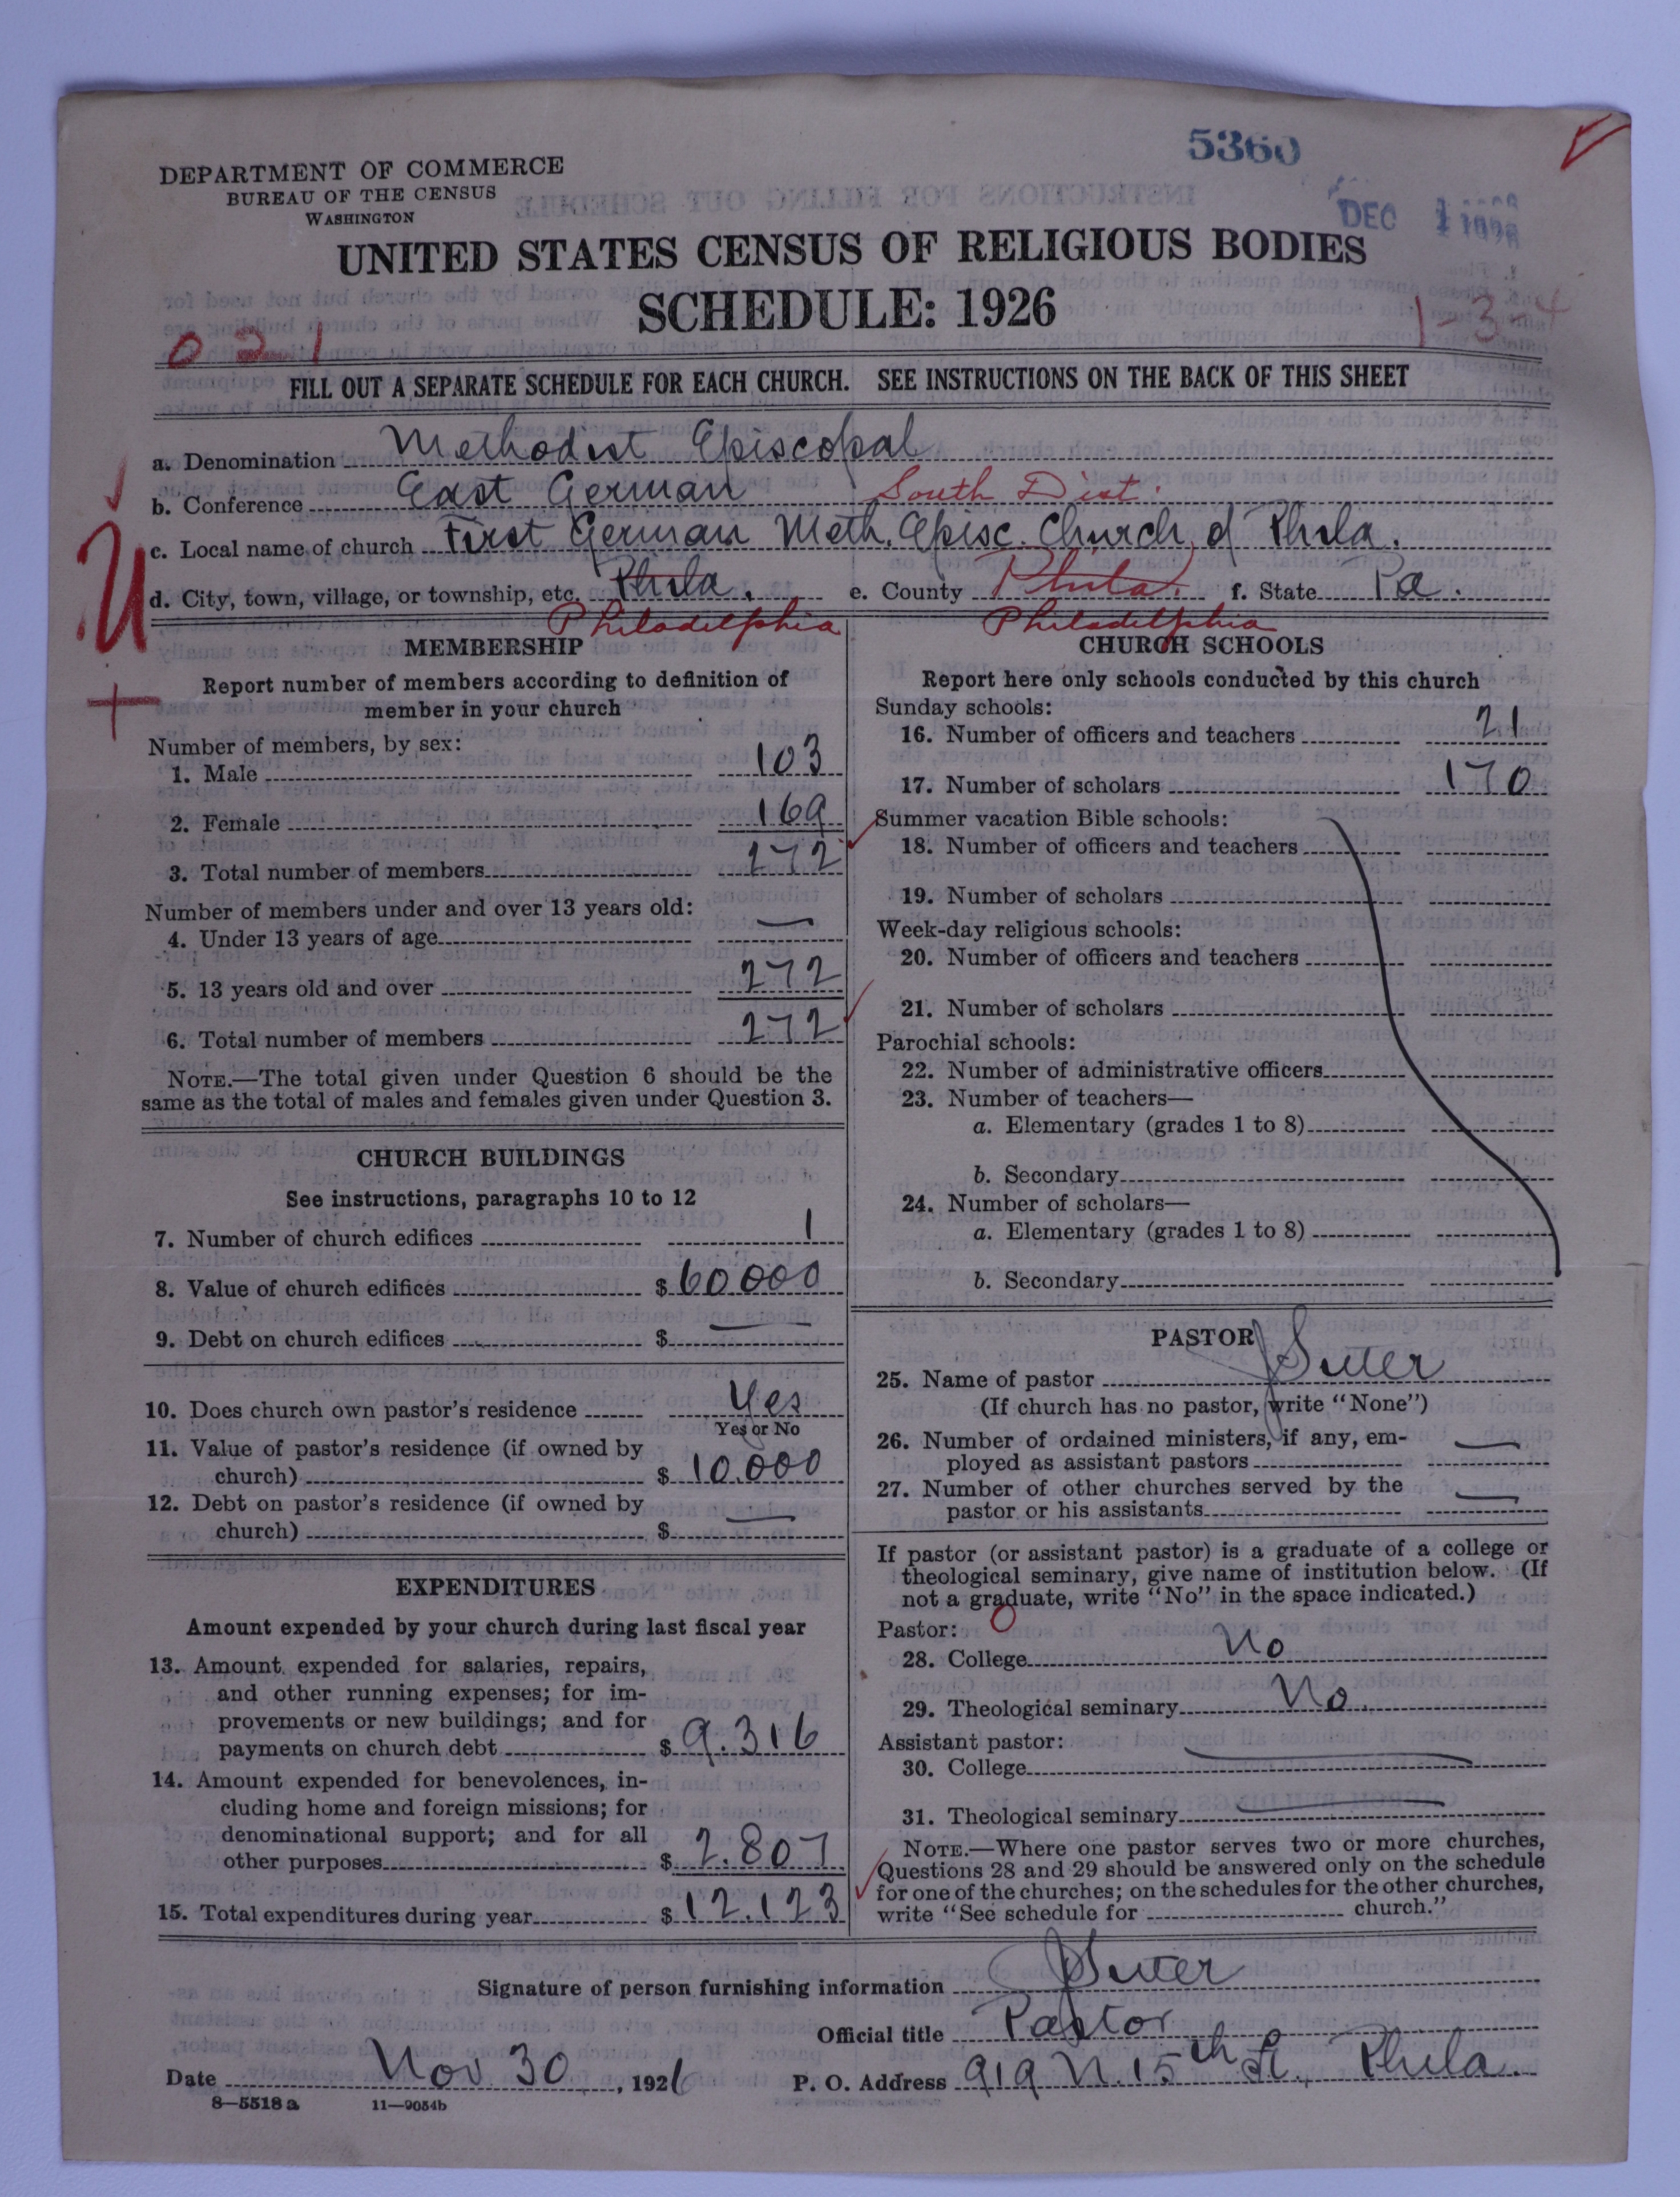 5360
DEPARTMENT OF COMMERCE
BUREAU OF THE CENSUS
WASHINGTON
DEC 1 1926
UNITED STATES CENSUS OF RELIGIOUS BODIES
SCHEDULE: 1926
0 2 1
1-3-4
FILL OUT A SEPARATE SCHEDULE FOR EACH CHURCH. SEE INSTRUCTIONS ON THE BACK OF THIS SHEET
a. Denomination Methodist Episcopal
b. Conference East German South Dist.
c. Local name of church First German Meth. Episc. Church of Phila.
d. City, town, village, or township, etc. Phila. e. County Phila. f. State Pa.
Philadelphia Philadelphia
U
+
MEMBERSHIP
Report number of members according to definition of
member in your church
Number of members, by sex:
1. Male 103
2. Female 169
3. Total number of members 272
Number of members under and over 13 years old:
4. Under 13 years of age —
5. 13 years old and over 272
6. Total number of members 272
NOTE.—The total given under Question 6 should be the
same as the total of males and females given under Question 3.
CHURCH BUILDINGS
See instructions, paragraphs 10 to 12
7. Number of church edifices 1
8. Value of church edifices $ 60000
9. Debt on church edifices $ —
10. Does church own pastor's residence Yes
Yes or No
11. Value of pastor's residence (if owned by
church) $ 10.000
12. Debt on pastor's residence (if owned by
church) $ —
EXPENDITURES
Amount expended by your church during last fiscal year
13. Amount expended for salaries, repairs,
and other running expenses; for im-
provements or new buildings; and for
payments on church debt $ 9.316
14. Amount expended for benevolences, in-
cluding home and foreign missions; for
denominational support; and for all
other purposes $ 2.807
15. Total expenditures during year $ 12.123
CHURCH SCHOOLS
Report here only schools conducted by this church
Sunday schools:
16. Number of officers and teachers 21
17. Number of scholars 170
Summer vacation Bible schools:
18. Number of officers and teachers
19. Number of scholars
Week-day religious schools:
20. Number of officers and teachers
21. Number of scholars
Parochial schools:
22. Number of administrative officers
23. Number of teachers—
a. Elementary (grades 1 to 8)
b. Secondary
24. Number of scholars—
a. Elementary (grades 1 to 8)
b. Secondary
PASTOR
25. Name of pastor J Suter
(If church has no pastor, write "None")
26. Number of ordained ministers, if any, em-
ployed as assistant pastors —
27. Number of other churches served by the
pastor or his assistants —
If pastor (or assistant pastor) is a graduate of a college or
theological seminary, give name of institution below. (If
not a graduate, write "No" in the space indicated.)
Pastor: 0
28. College No
29. Theological seminary No.
Assistant pastor:
30. College —
31. Theological seminary —
NOTE.—Where one pastor serves two or more churches,
Questions 28 and 29 should be answered only on the schedule
for one of the churches; on the schedules for the other churches,
write "See schedule for church."
Signature of person furnishing information J Suter
Official title Pastor
Date Nov 30, 1926 P. O. Address 919 N. 15th St., Phila.
8—5518 a 11—9054b